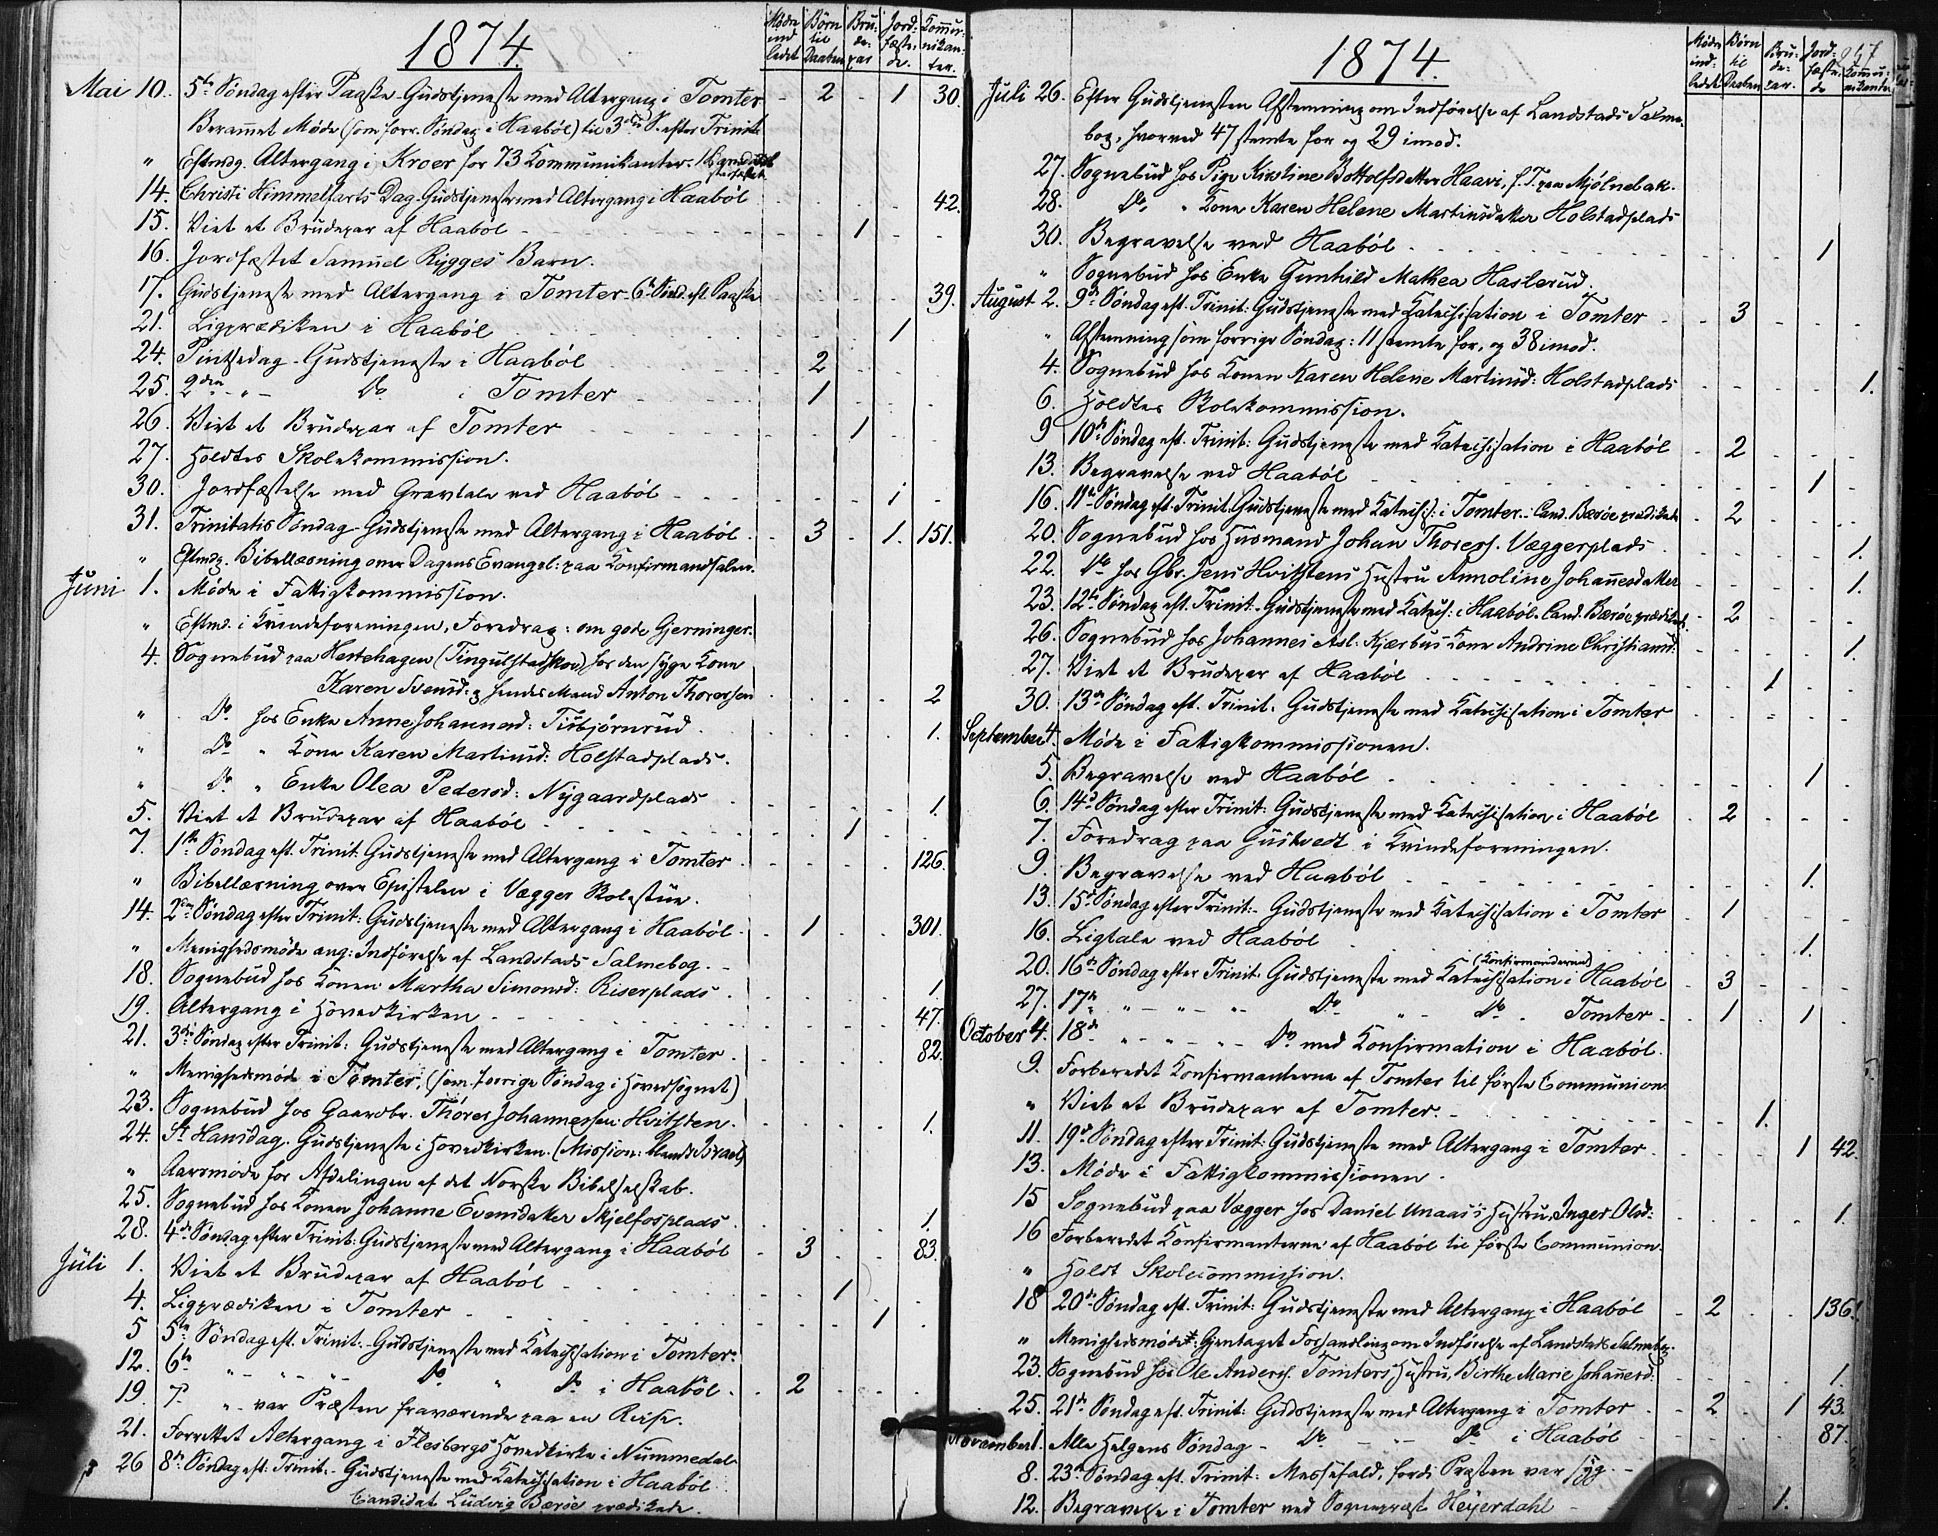 1874.
Møder indledet Børn til Daaben Brudepar Jordfæstede. Kommunikanter.
Mai 10. 5te Søndag efter Paaske Gudstjeneste med Altergang i Tomter - 2 - 1 30.
Berammet Møde (som forr. Søndag i Haabøl) til 3die S. efter Trinit:
" Eftmdg. Altergang i Kroer for 73 Kommunikanter.
14. Christi Himmelfarts Dag Gudstjeneste med Altergang i Haabøl 42.
15. Viet et Brudepar af Haabøl 1
16. Jordfæstet Samuel Rygges Barn.
17. Gudstjeneste med Altergang i Tomter 6te Sønd. eft. Paaske 39.
21. Ligprædiken i Haabøl 1
24. Pintsedag Gudstjeneste i Haabøl 2
25. 2den " - Do i Tomter 1
26. Viet et Brudepar af Tomter 1
27. Holdtes Skolekommission.
30. Jordfæstelse med Gravtale ved Haabøl 1
31. Trinitatis Søndag Gudstjeneste med Altergang i Haabøl 3 - 1. 151.
" Eftmdg. Bibellæsning over Dagens Evangel: paa Konfirmandsalen.
Juni 1. Møde i Fattigkommission.
" Eftmd. i Kvindeforeningen, Foredrag: om gode Gjerninger.
4. Sognebud paa Hestehagen (Tingulstadskov) hos den syge Kone
Karen Svensd: og hendes Mand Anton Thoresen 2
" Do hos Enke Anne Johannesd: Tisbjørnrud 1.
" Do " Kone Karen Martinsd: Holstadplads.
" Do " Enke Olea Pedersd: Nygaardplads 1.
5. Viet et Brudepar af Haabøl 1
7. 1ste Søndag eft. Trinit. Gudstjeneste med Altergang i Tomter 126.
" Bibellæsning over Epistelen i Vægger Skolestue.
14. 2den Søndag efter Trinit: Gudstjeneste med Altergang i Haabøl 1 301.
" Menighedsmøde ang: Indførelse af Landstads Salmebog.
18. Sognebud hos Konen Martha Simonsd: Riserplads 1
19. Altergang i Hovedkirken 47.
21. 3die Søndag efter Trinit: Gudstjeneste med Altergang i Tomter 82.
" Menighedsmøde i Tomter, (som forrige Søndag i Hovedsognet)
23. Sognebud hos Gaardbr. Thores Johannessen Hvitsten 1.
24. St Hansdag. Gudstjeneste i Hovedkirken. (Mission: Israel)
" Aarsmøde for Afdelingen af det Norske Bibelselskab.
25. Sognebud hos Konen Johanne Evensdatter Skjelfosplads 1.
28. 4de Søndag efter Trinit: Gudstjeneste med Altergang i Haabøl 3 83.
Juli 1. Viet et Brudepar af Haabøl 1
4. Ligprædiken i Tomter 1
5 5te Søndag eft. Trinit. Gudstjeneste med Katechisation i Tomter.
12. 6te " - " - Do " Do i Haabøl 2
19. 7. " - var Præsten fraværende paa en Reise.
21. Forrettet Altergang i Flesbergs Hovedkirke i Nummedal
26 8de Søndag eft: Trinit: Gudstjeneste med Katechisation i Haabøl
Candidat Ludvig Bærøe prædikede.
1874.
Møder indledet Børn til Daaben Brudepar. Jordfæstede Kommunikanter
Juli 26. Efter Gudstjenesten Afstemning om Indførelse af Landstads Salmebog, hvorved 47 stemte for og 29 imod.
27. Sognebud hos Pige Kirstine Bottolfsdatter Haavi, f. T. paa Mjølnebak.
28. Do " Kone Karen Helene Martinsdatter Holstadplads
30. Begravelse ved Haabøl 1
" Sognebud hos Enke Gunhild Mathea Haslerud.
August 2. 9de Søndag eft. Trinit: Gudstjeneste med Katechisation i Tomter 3
" Afstemning som forrige Søndag: 11 stemte for, og 38 imod.
4. Sognebud hos Konen Karen Helene Martinsd: Holstadplads 1.
6. Holdtes Skolekommission.
9 10de Søndag eft. Trinit: Gudstjeneste med Katechisation i Haabøl 2
13. Begravelse ved Haabøl 1
16. 11te Søndag eft. Trinit. Gudstjeneste med Katechis: i Tomter. Cand. Bærøe prædikede 2
20. Sognebud hos Husmand Johan Thoress. Væggerplads 1.
22. Do hos Gbr. Jens Hvitstens Hustru Annoline Johannesdatter 1.
23. 12te Søndag eft. Trinit: Gudstjeneste med Katech: i Haabøl. Cand. Bærøe prædikede. 2
26. Sognebud hos Johannes Asl: Kjærbus Kone Andrine Christiansd: 1.
27. Viet et Brudepar af Haabøl 1
30. 13de Søndag eft. Trinit. Gudstjeneste med Katechisation i Tomter
September 4. Møde i Fattigkommissionen.
5. Begravelse ved Haabøl 1
6. 14de Søndag efter Trinit: Gudstjeneste med Katechisation i Haabøl 2
7. Foredrag paa Gustvedt i Kvindeforeningen.
9. Begravelse ved Haabøl 1.
13. 15de Søndag efter Trinit: Gudstjeneste med Katechisation i Tomter 1
16. Ligtale ved Haabøl 1.
(Konfirmanderne)
20. 16de Søndag efter Trinit. Gudstjeneste med Katechisation i Haabøl 3
27. 17de " - " - " Do " - Do Tomter 1 1
October 4. 18de - " - " - Do med Konfirmation i Haabøl.
9. Forberedet Konfirmanterne af Tomter til første Communion
" Viet et Brudepar af Tomter. 1.
11. 19de Søndag efter Trinit: Gudstjeneste med Altergang i Tomter 1 42
13. Møde i Fattigkommissionen.
15 Sognebud paa Vægger hos Daniel Unaas's Hustru, Inger Olsd: 1.
16 Forberedet Konfirmanterne af Haabøl til første Communion.
" Holdt Skolecommission.
18 20de Søndag eft. Trinit: Gudstjeneste med Altergang i Haabøl 2 136.
" Menighedsmøde: Gjentaget Forhandling om Indførelse af Landstads Salmebog.
23. Sognebud hos Ole Anders. Tomters Hustru, Birthe Marie Johannesd. 1.
25. 21de Søndag eft. Trinit: Gudstjeneste med Altergang i Tomter 2 1 43.
November 1. Alle Helgens Søndag - Do - " - Do i Haabøl 87.
8. 23de Søndag eft. Trinit: Messefald, fordi Præsten var syg.
12. Begravelse i Tomter ved Sognepræst Heyerdahl 1.